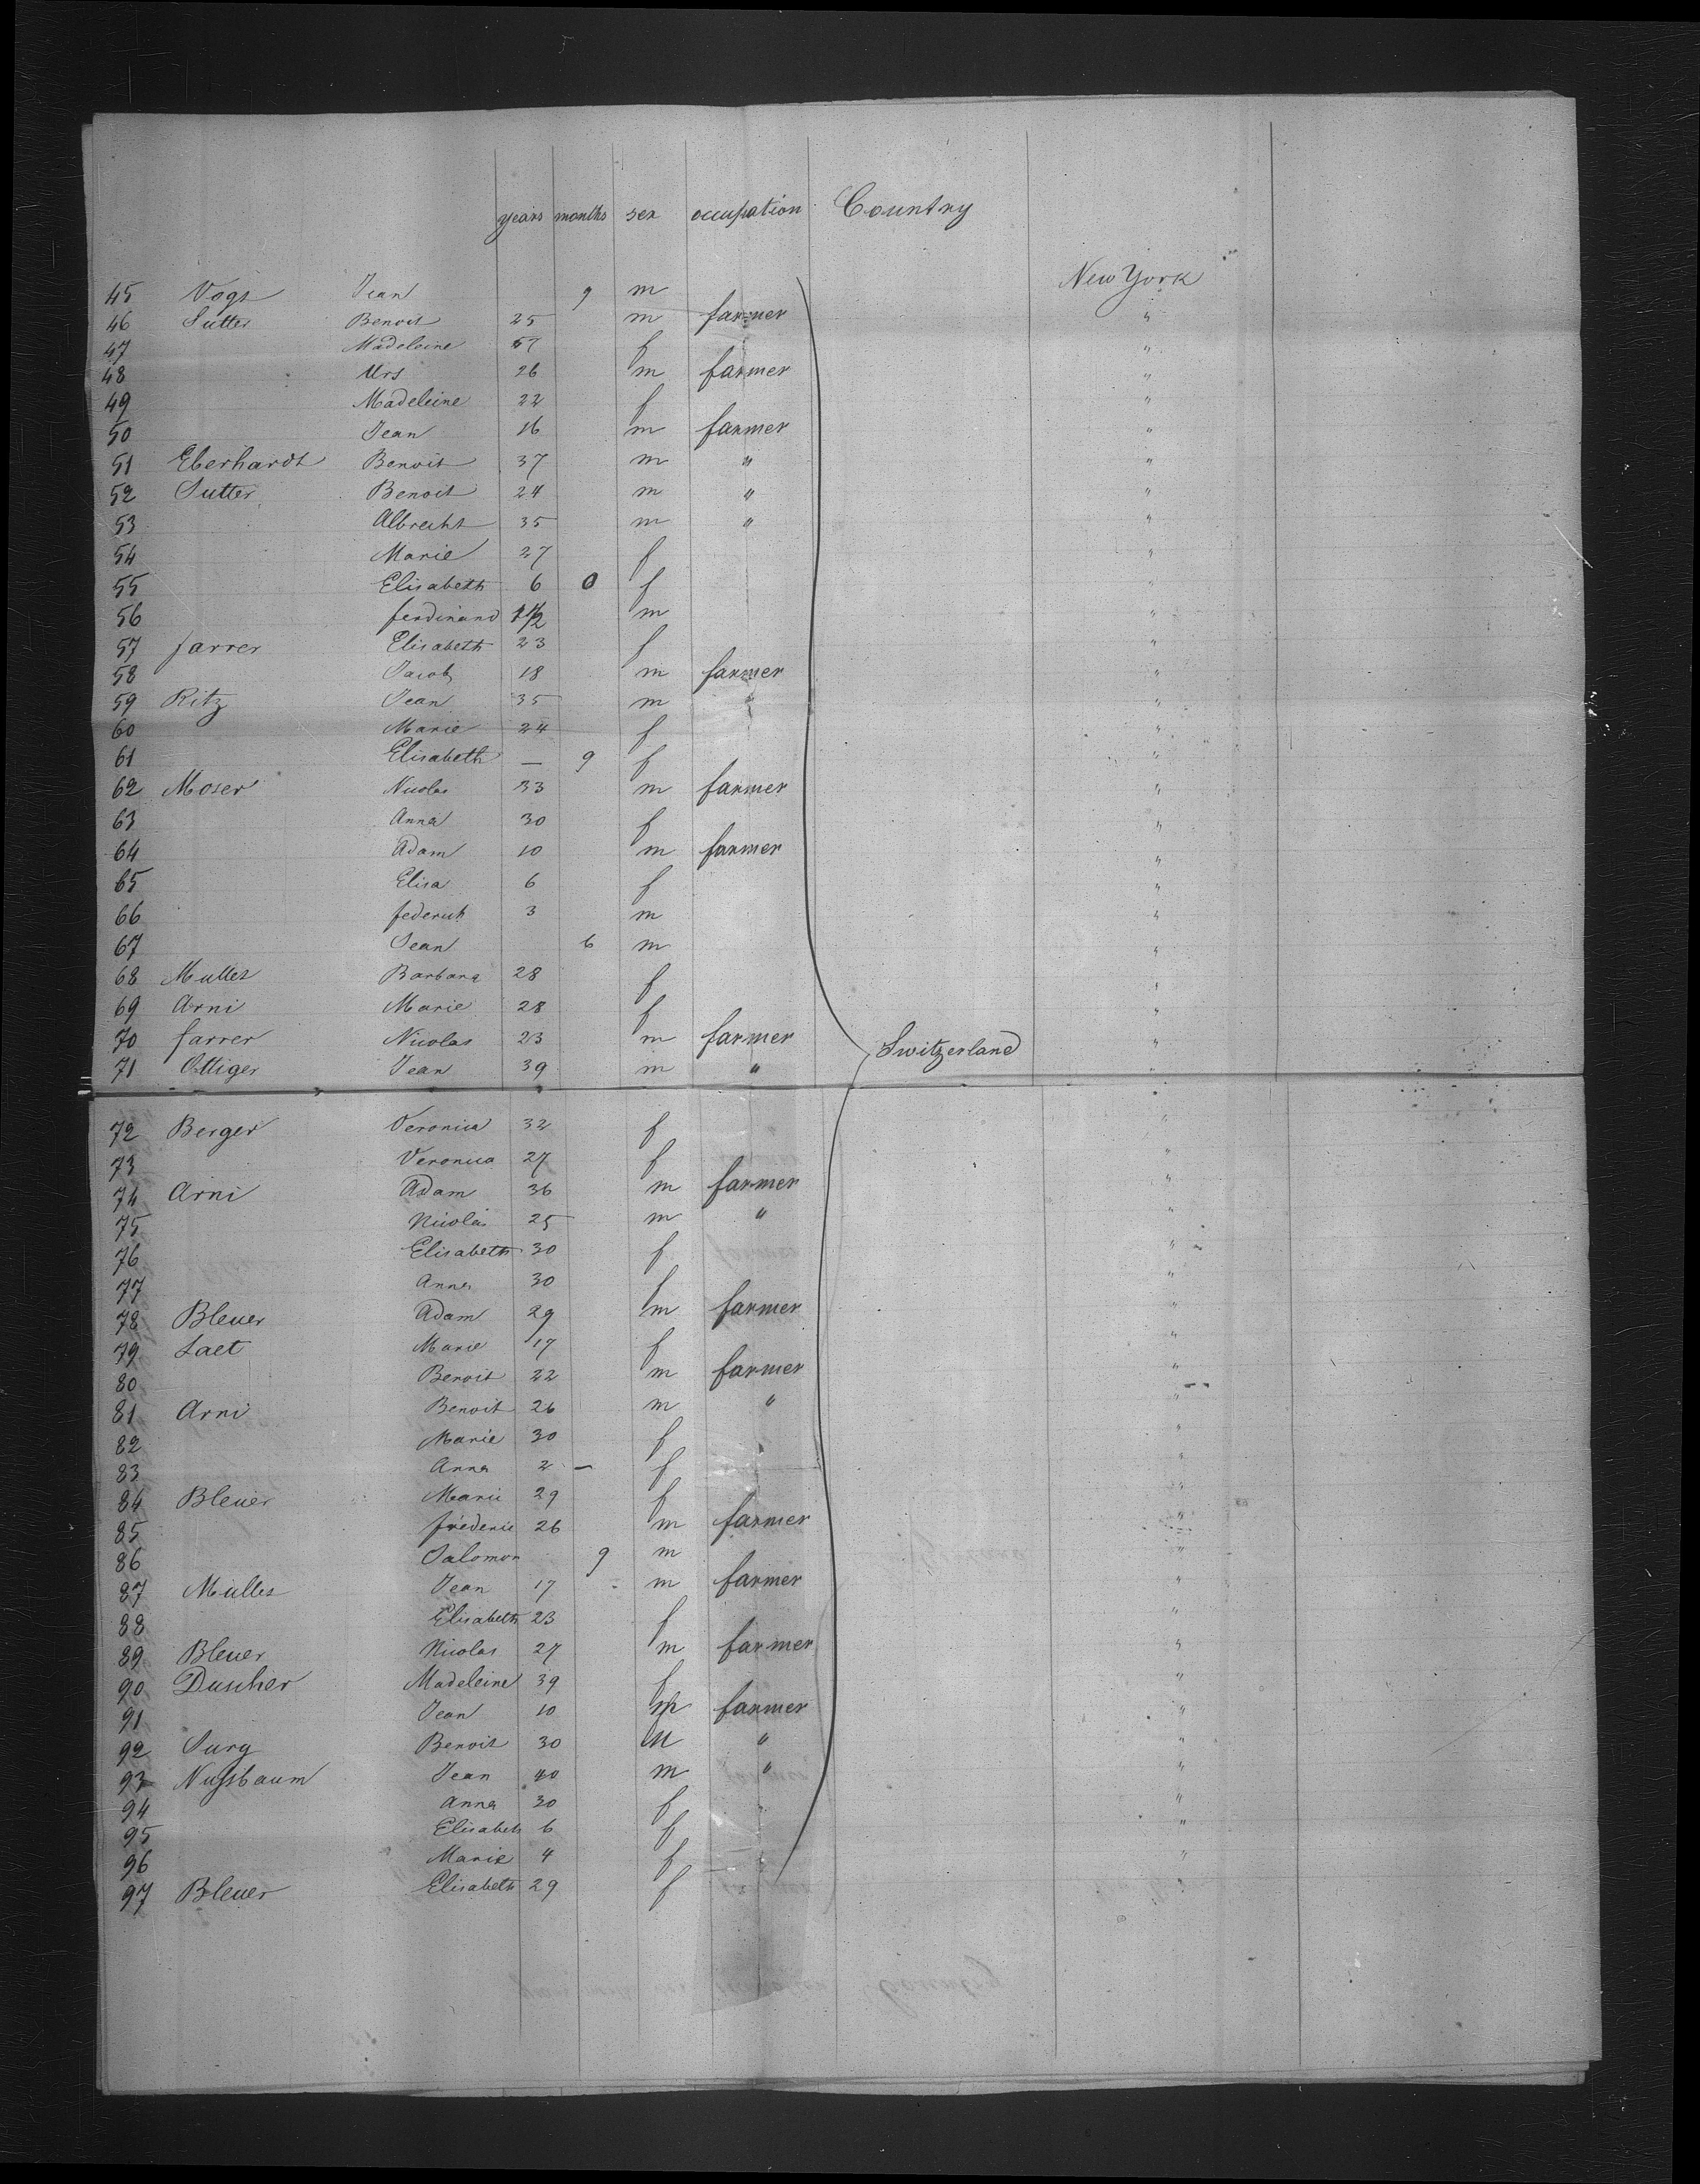 years months sex occupation Country
New York
45 Vogt Jean 9 m
46 Sutter Benoit 25 m farmer "
47 Madeleine 57 f "
48 Urs 26 m farmer "
49 Madeleine 22 f "
50 Jean 16 m farmer "
51 Eberhardt Benoit 37 m " "
52 Sutter Benoit 24 m " "
53 Albrecht 35 m " "
54 Marie 27 f "
55 Elisabeth 6 0 f "
56 ferdinand 1 1/2 m "
57 farrer Elisabeth 23 f "
58 Jacob 18 m farmer "
59 Ritz Jean 35 m " "
60 Marie 24 f "
61 Elisabeth — 9 f "
62 Moser Nicolas 33 m farmer "
63 Anna 30 f "
64 Adam 10 m farmer "
65 Elisa 6 f "
66 federich 3 m "
67 Jean 6 m "
68 Muller Barbara 28 f "
69 Arni Marie 28 f "
70 farrer Nicolas 23 m farmer Switzerland "
71 Ottiger Jean 39 m " "
72 Berger Veronica 32 f "
73 Veronica 27 f "
74 Arni Adam 36 m farmer "
75 Nicolas 25 m " "
76 Elisabeth 30 f "
77 Anna 30 f "
78 Bleuer Adam 29 m farmer "
79 Laet Marie 17 f "
80 Benoit 22 m farmer "
81 Arni Benoit 26 m " "
82 Marie 30 f "
83 Anna 2 — f "
84 Bleuer Marie 29 f "
85 frederic 26 m farmer "
86 Salomon 9 m "
87 Muller Jean 17 m farmer "
88 Elisabeth 23 f "
89 Bleuer Nicolas 27 m farmer "
90 Duscher Madeleine 39 f "
91 Jean 10 m farmer "
92 Surg Benoit 30 M " "
93 Nussbaum Jean 40 m " "
94 Anna 30 f "
95 Elisabeth 6 f "
96 Marie 4 f "
97 Bleuer Elisabeth 29 f "